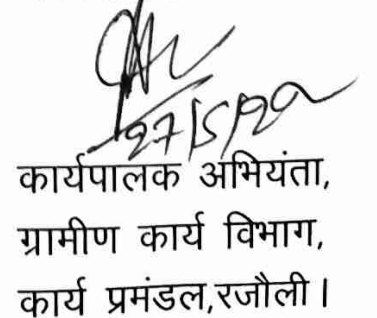 27/5/20
कार्यपालक अभियंता,
ग्रामीण कार्य विभाग,
कार्य प्रमंडल,रजौली।